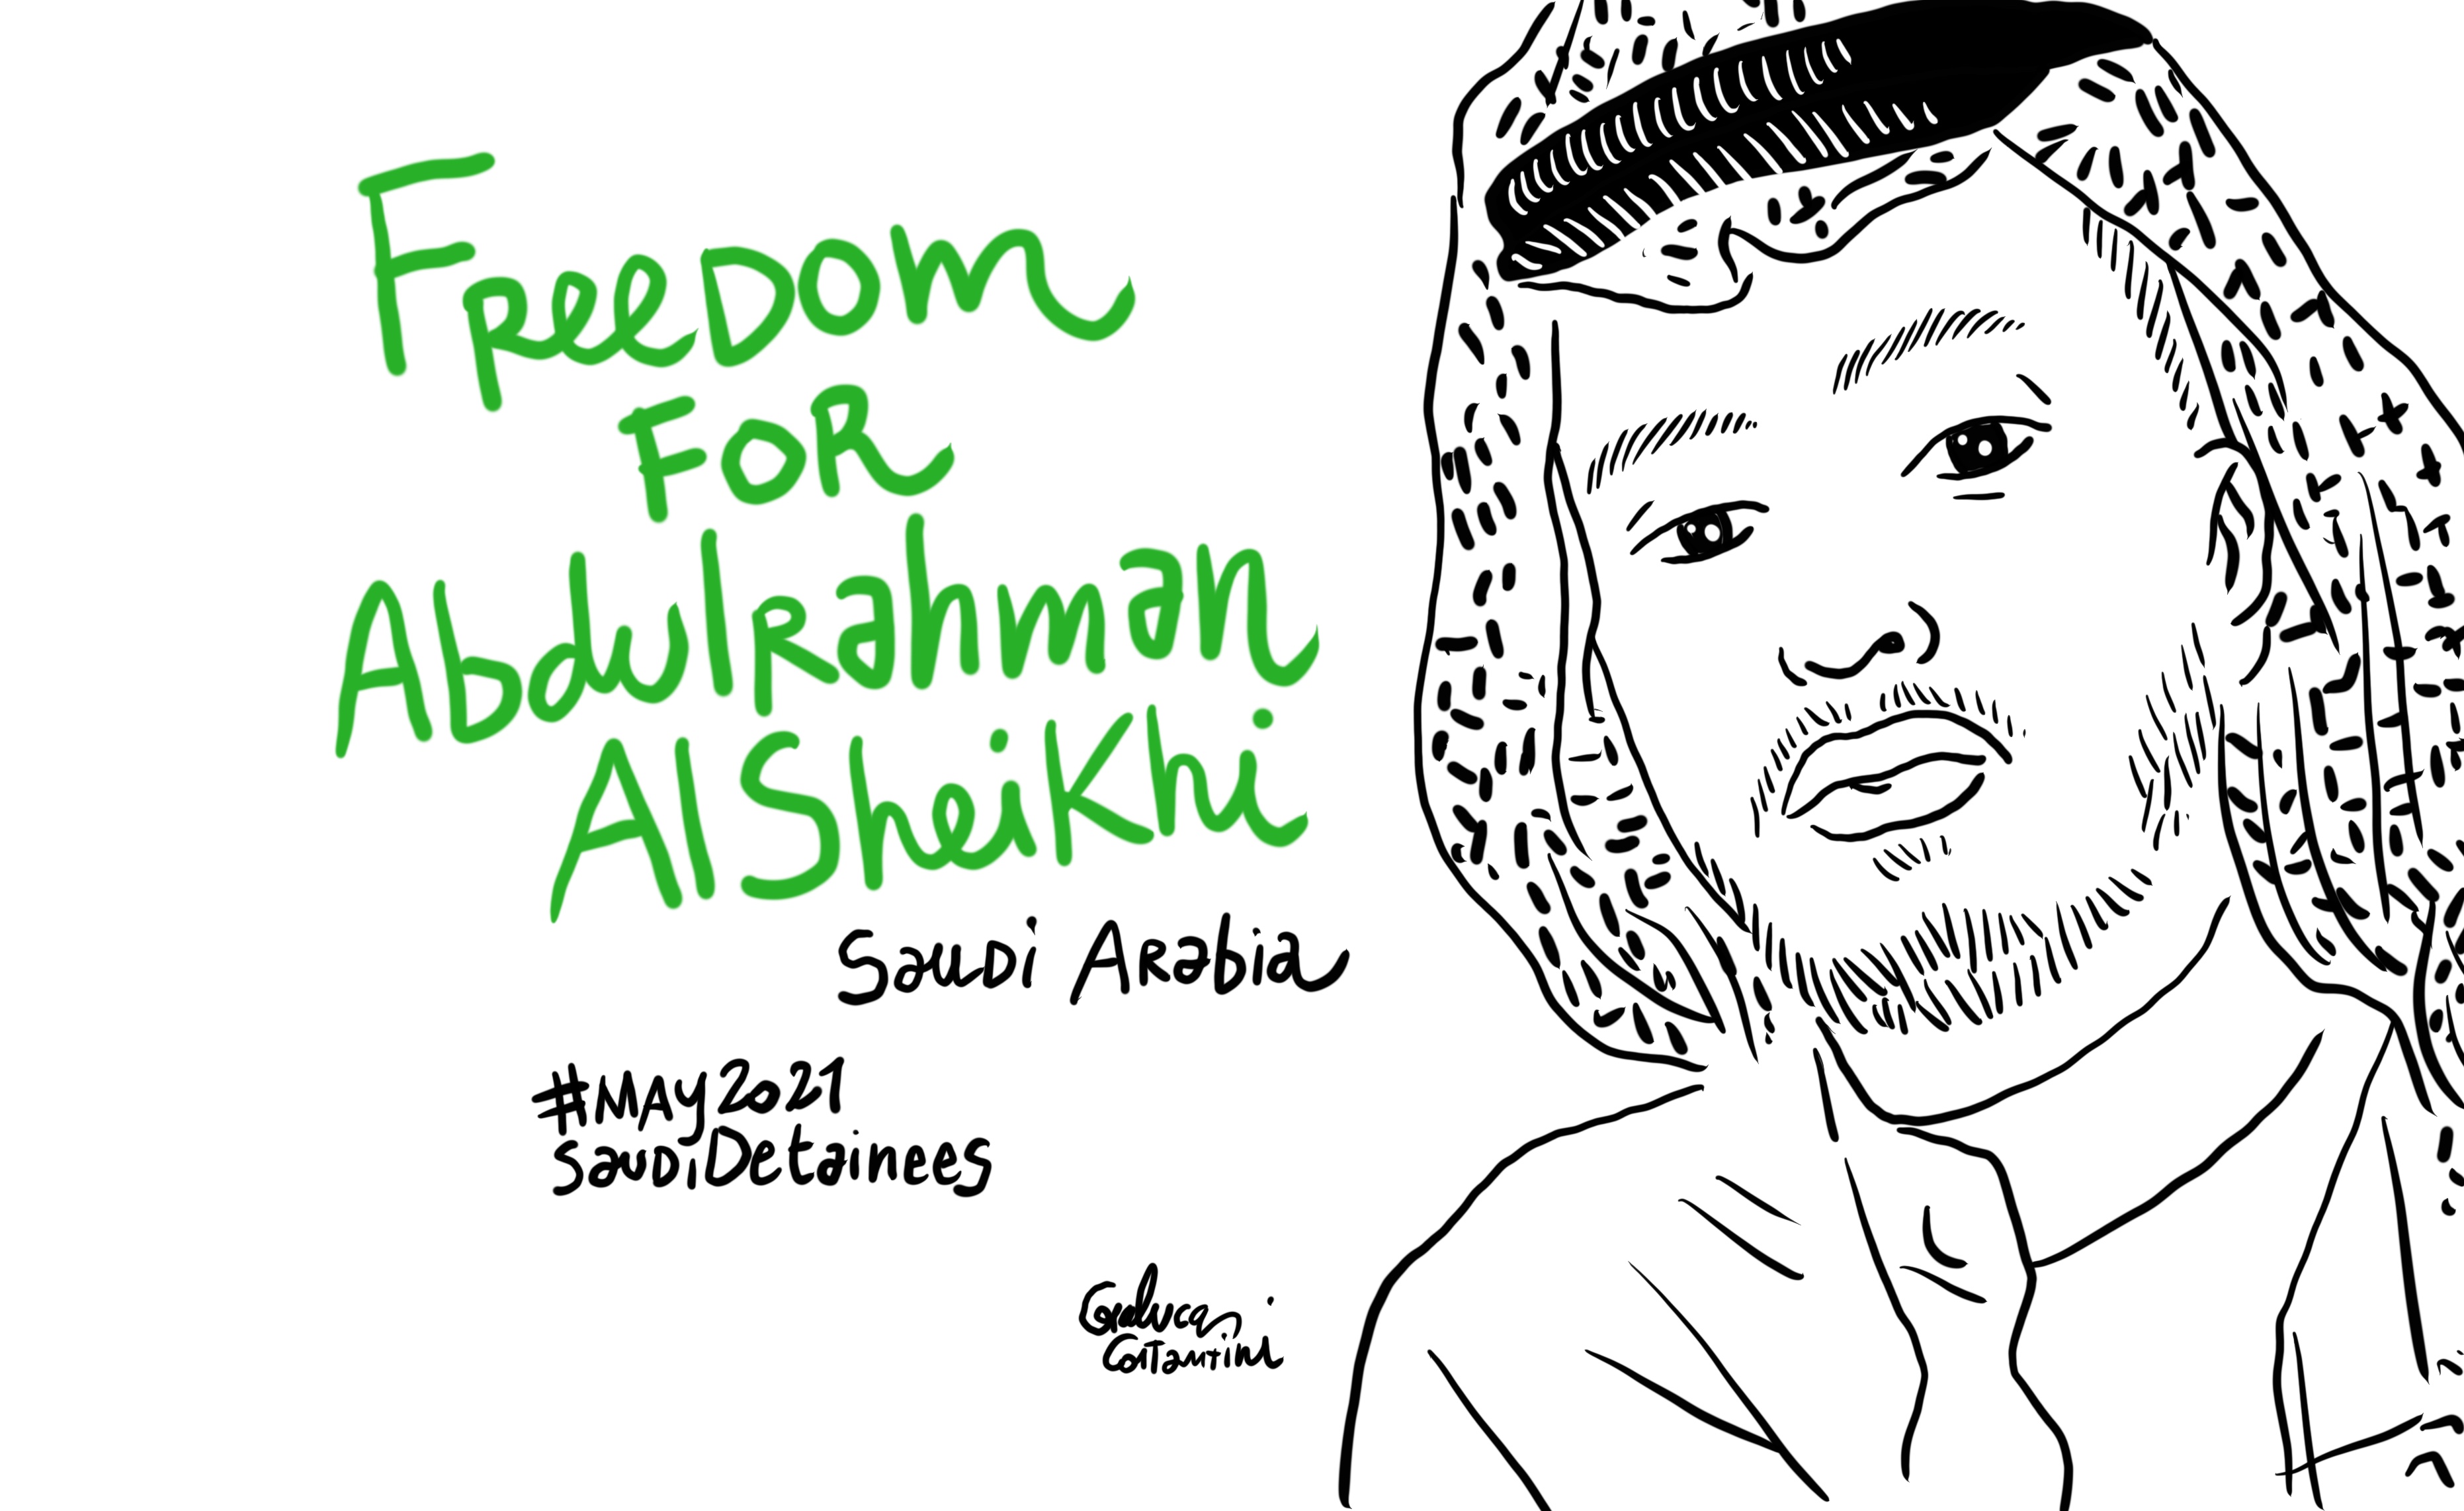 FReeDom
FOR
AbdulRahman
AlSheiKhi
SauDi ARabia
#MAY2021
SauDiDetainees
Gianluca
Costantini